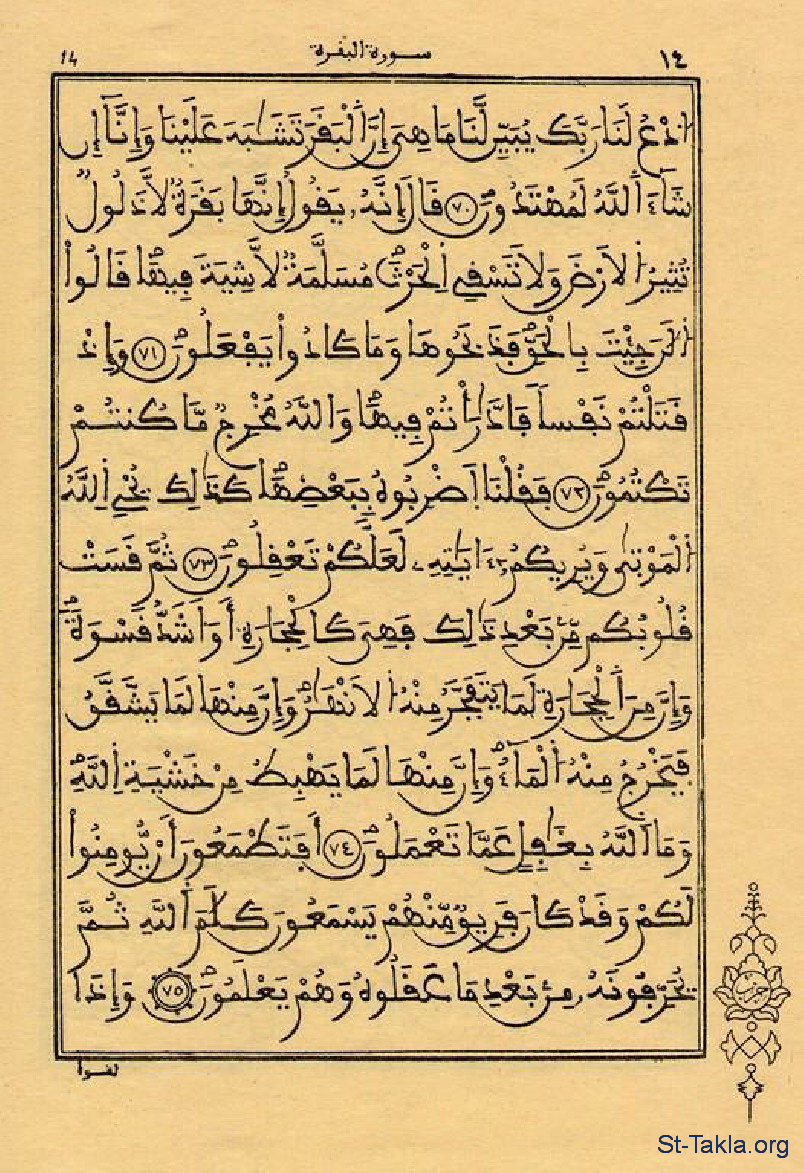 ١٤ سورة البقرة 14
اُدْعُ لَنَا رَبَّكَ يُبَيِّن لَّنَا مَا هِيَ إِنَّ اَلْبَقَرَ تَشَٰبَهَ عَلَيْنَا وَإِنَّآ إِن
شَآءَ اَللَّهُ لَمُهْتَدُونَۖ ٧٠ قَالَ إِنَّهُۥ يَقُولُ إِنَّهَا بَقَرَةٌ لَّا ذَلُولٌ
تُثِيرُ اُلَارْضَ وَلَا تَسْقِي اِلْحَرْثَۖ مُسَلَّمَةٌ لَّا شِيَةَ فِيهَاۖ قَالُواْ
اُلَٰنَ جِئْتَ بِالْحَقِّۖ فَذَبَحُوهَا وَمَا كَادُواْ يَفْعَلُونَۖ ٧١ وَإِذْ
قَتَلْتُمْ نَفْساً فَادَّٰرَأْتُمْ فِيهَاۖ وَاللَّهُ مُخْرِجٌ مَّا كُنتُمْ
تَكْتُمُونَۖ ٧٢ فَقُلْنَا اَضْرِبُوهُ بِبَعْضِهَاۖ كَذَٰلِكَ يُحْيِ اِللَّهُ
اُلْمَوْتَىٰ وَيُرِيكُمُۥٓ ءَايَٰتِهِۦ لَعَلَّكُمْ تَعْقِلُونَۖ ٧٣ ثُمَّ قَسَتْ
قُلُوبُكُم مِّنۢ بَعْدِ ذَٰلِكَ فَهِيَ كَالْحِجَارَةِ أَوَ اَشَدُّ قَسْوَةًۖ
وَإِنَّ مِنَ اَلْحِجَارَةِ لَمَا يَتَفَجَّرُ مِنْهُ اُلَانْهَٰرُۖ وَإِنَّ مِنْهَا لَمَا يَشَّقَّقُ
فَيَخْرُجُ مِنْهُ اُلْمَآءُۖ وَإِنَّ مِنْهَا لَمَا يَهْبِطُ مِنْ خَشْيَةِ اِللَّهِۖ
وَمَا اَللَّهُ بِغَٰفِلٍ عَمَّا تَعْمَلُونَۖ ٧٤ أَفَتَطْمَعُونَ أَنْ يُّومِنُواْ
لَكُمْ وَقَدْ كَانَ فَرِيقٌ مِّنْهُمْ يَسْمَعُونَ كَلَٰمَ اَللَّهِ ثُمَّ
يُحَرِّفُونَهُۥ مِنۢ بَعْدِ مَا عَقَلُوهُ وَهُمْ يَعْلَمُونَۖ ٧٥ وَإِذَا
لقوا
حزب
St-Takla.org